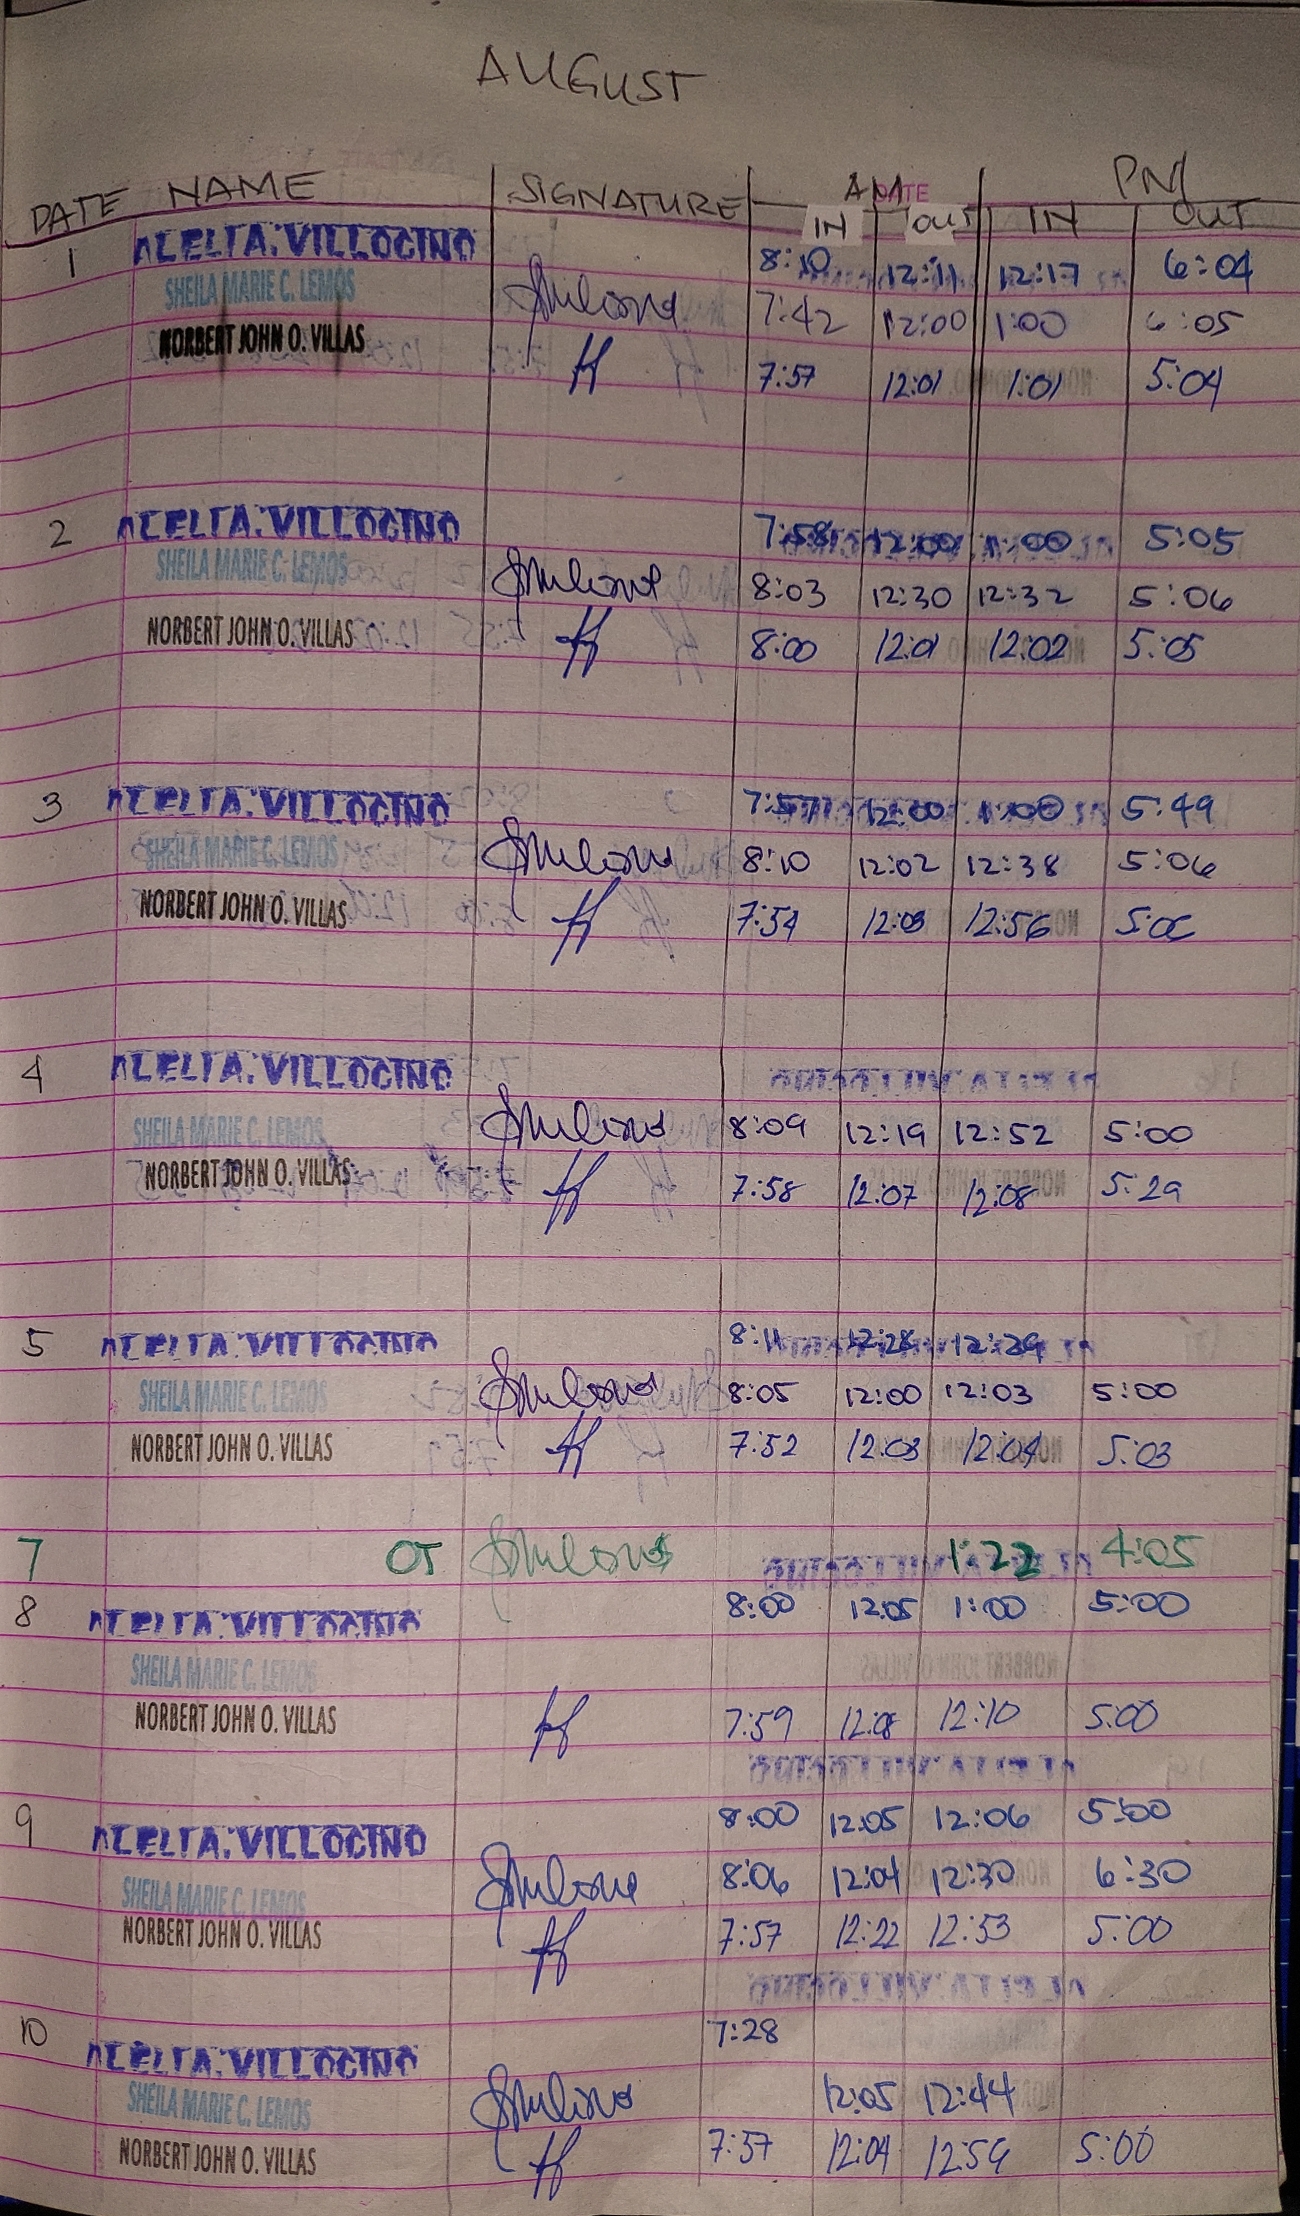 AUGUST
DATE NAME SIGNATURE AM PM
DATE
IN OUT IN OUT
1 VILLOCINO 8:10 12:11 12:17 6:04
SHEILA MARIE C. LEMOS 7:42 12:00 1:00 6:05
NORBERT JOHN O. VILLAS 7:57 12:01 1:01 5:04
2 VILLOCINO 7:58 12:00 1:00 5:05
SHEILA MARIE C. LEMOS 8:03 12:30 12:32 5:06
NORBERT JOHN O. VILLAS 8:00 12:01 12:02 5:05
3 VILLOCINO 7:57 12:00 1:00 5:49
SHEILA MARIE C. LEMOS 8:10 12:02 12:38 5:06
NORBERT JOHN O. VILLAS 7:54 12:03 12:56 5:06
4 VILLOCINO
SHEILA MARIE C. LEMOS 8:09 12:19 12:52 5:00
NORBERT JOHN O. VILLAS 7:58 12:07 12:08 5:29
5 VILLOCINO 8:11 12:28 12:29
SHEILA MARIE C. LEMOS 8:05 12:00 12:03 5:00
NORBERT JOHN O. VILLAS 7:52 12:03 12:04 5:03
7 OT 1:22 4:05
8 VILLOCINO 8:00 12:05 1:00 5:00
SHEILA MARIE C. LEMOS
NORBERT JOHN O. VILLAS 7:59 12:08 12:10 5:00
9 VILLOCINO 8:00 12:05 12:06 5:00
SHEILA MARIE C. LEMOS 8:06 12:04 12:30 6:30
NORBERT JOHN O. VILLAS 7:57 12:22 12:53 5:00
10 VILLOCINO 7:28
SHEILA MARIE C. LEMOS 12:05 12:44
NORBERT JOHN O. VILLAS 7:57 12:04 12:59 5:00